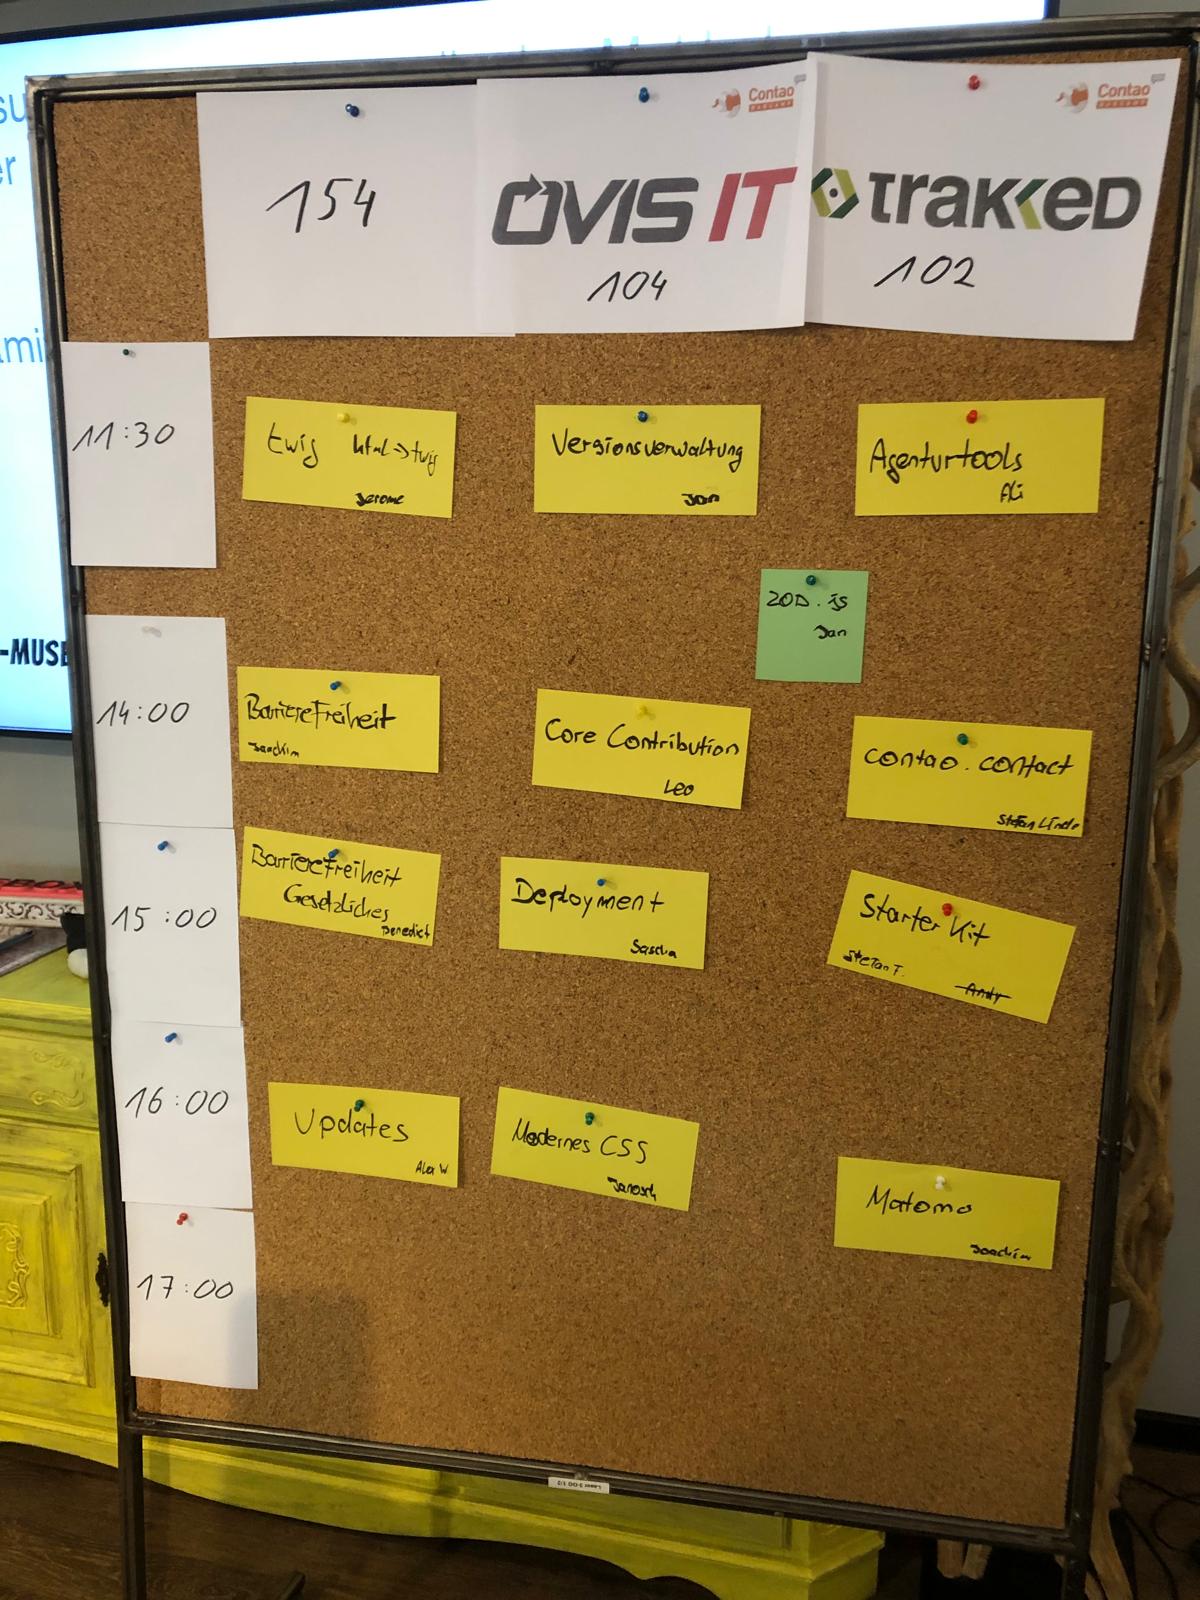 154
Contao
BARCAMP
OVIS IT
104
Contao
BARCAMP
TRAKKED
102
11:30
twig html->twig
Jerome
Versionsverwaltung
Jan
Agenturtools
Ali
ZOD.is
Jan
-MUSE
14:00
BarriereFreiheit
Joachim
Core Contribution
Leo
contao.contact
Stefan Linde
15:00
BarriereFreiheit
Gesetzliches
Benedict
Deployment
Sascha
Starter Kit
Stefan T.
Andy
16:00
Updates
Alex W
Modernes CSS
Janosch
Matomo
Joachim
17:00